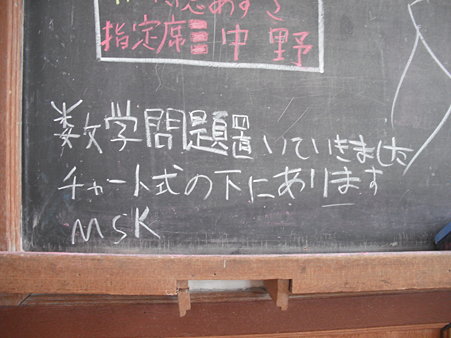 あずさ
指定席 中野
数学問題置いていきました
チャート式の下にあります
MSK